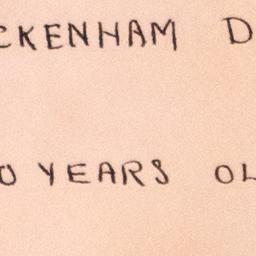 CKENHAM D
0 YEARS OL